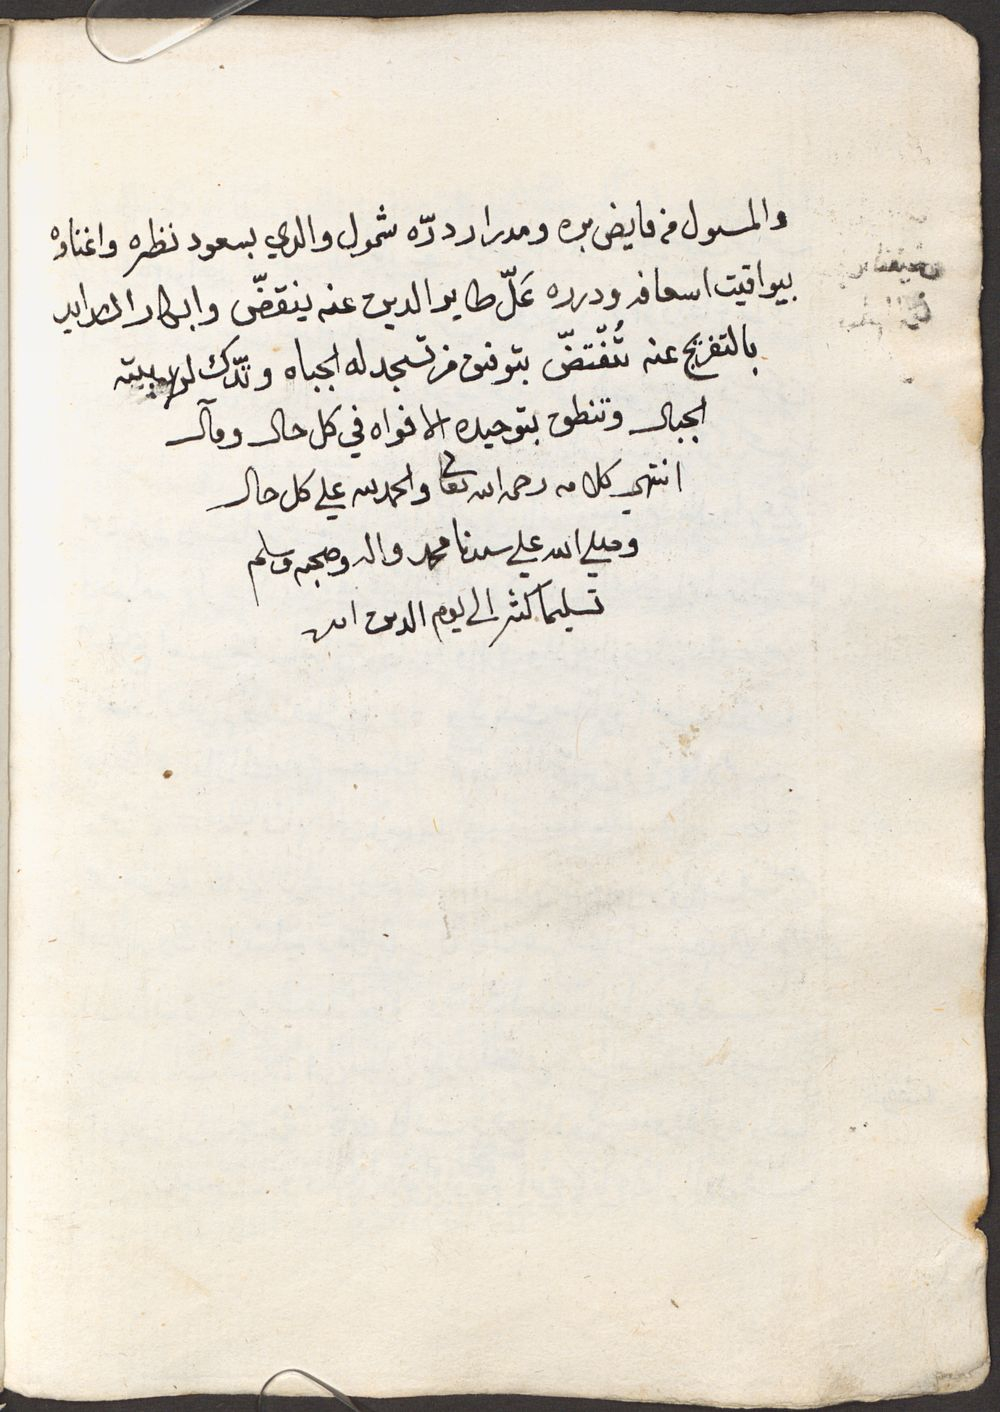 والمسول من فايض بره ومدرار درّه شمول والدي بسعود نظره واغناوه
بيواقيت اسعافه ودرره عَلّ طاير الدين عنه ينقضّ وابكار الشدايد
بالتفريج عنه تُفْتَضّ بتوفيق من تسجد له الجباه وتدّكّ لهيبته
الجبال وتنطق بتوحيده الافواه في كل حال ومآل
انتهى كلامه رحمه الله تعالى والحمد لله علي كل حال
وصلي الله علي سيدنا محمد واله وصحبه وسلم
تسليما كثيرا الي يوم الدين امين